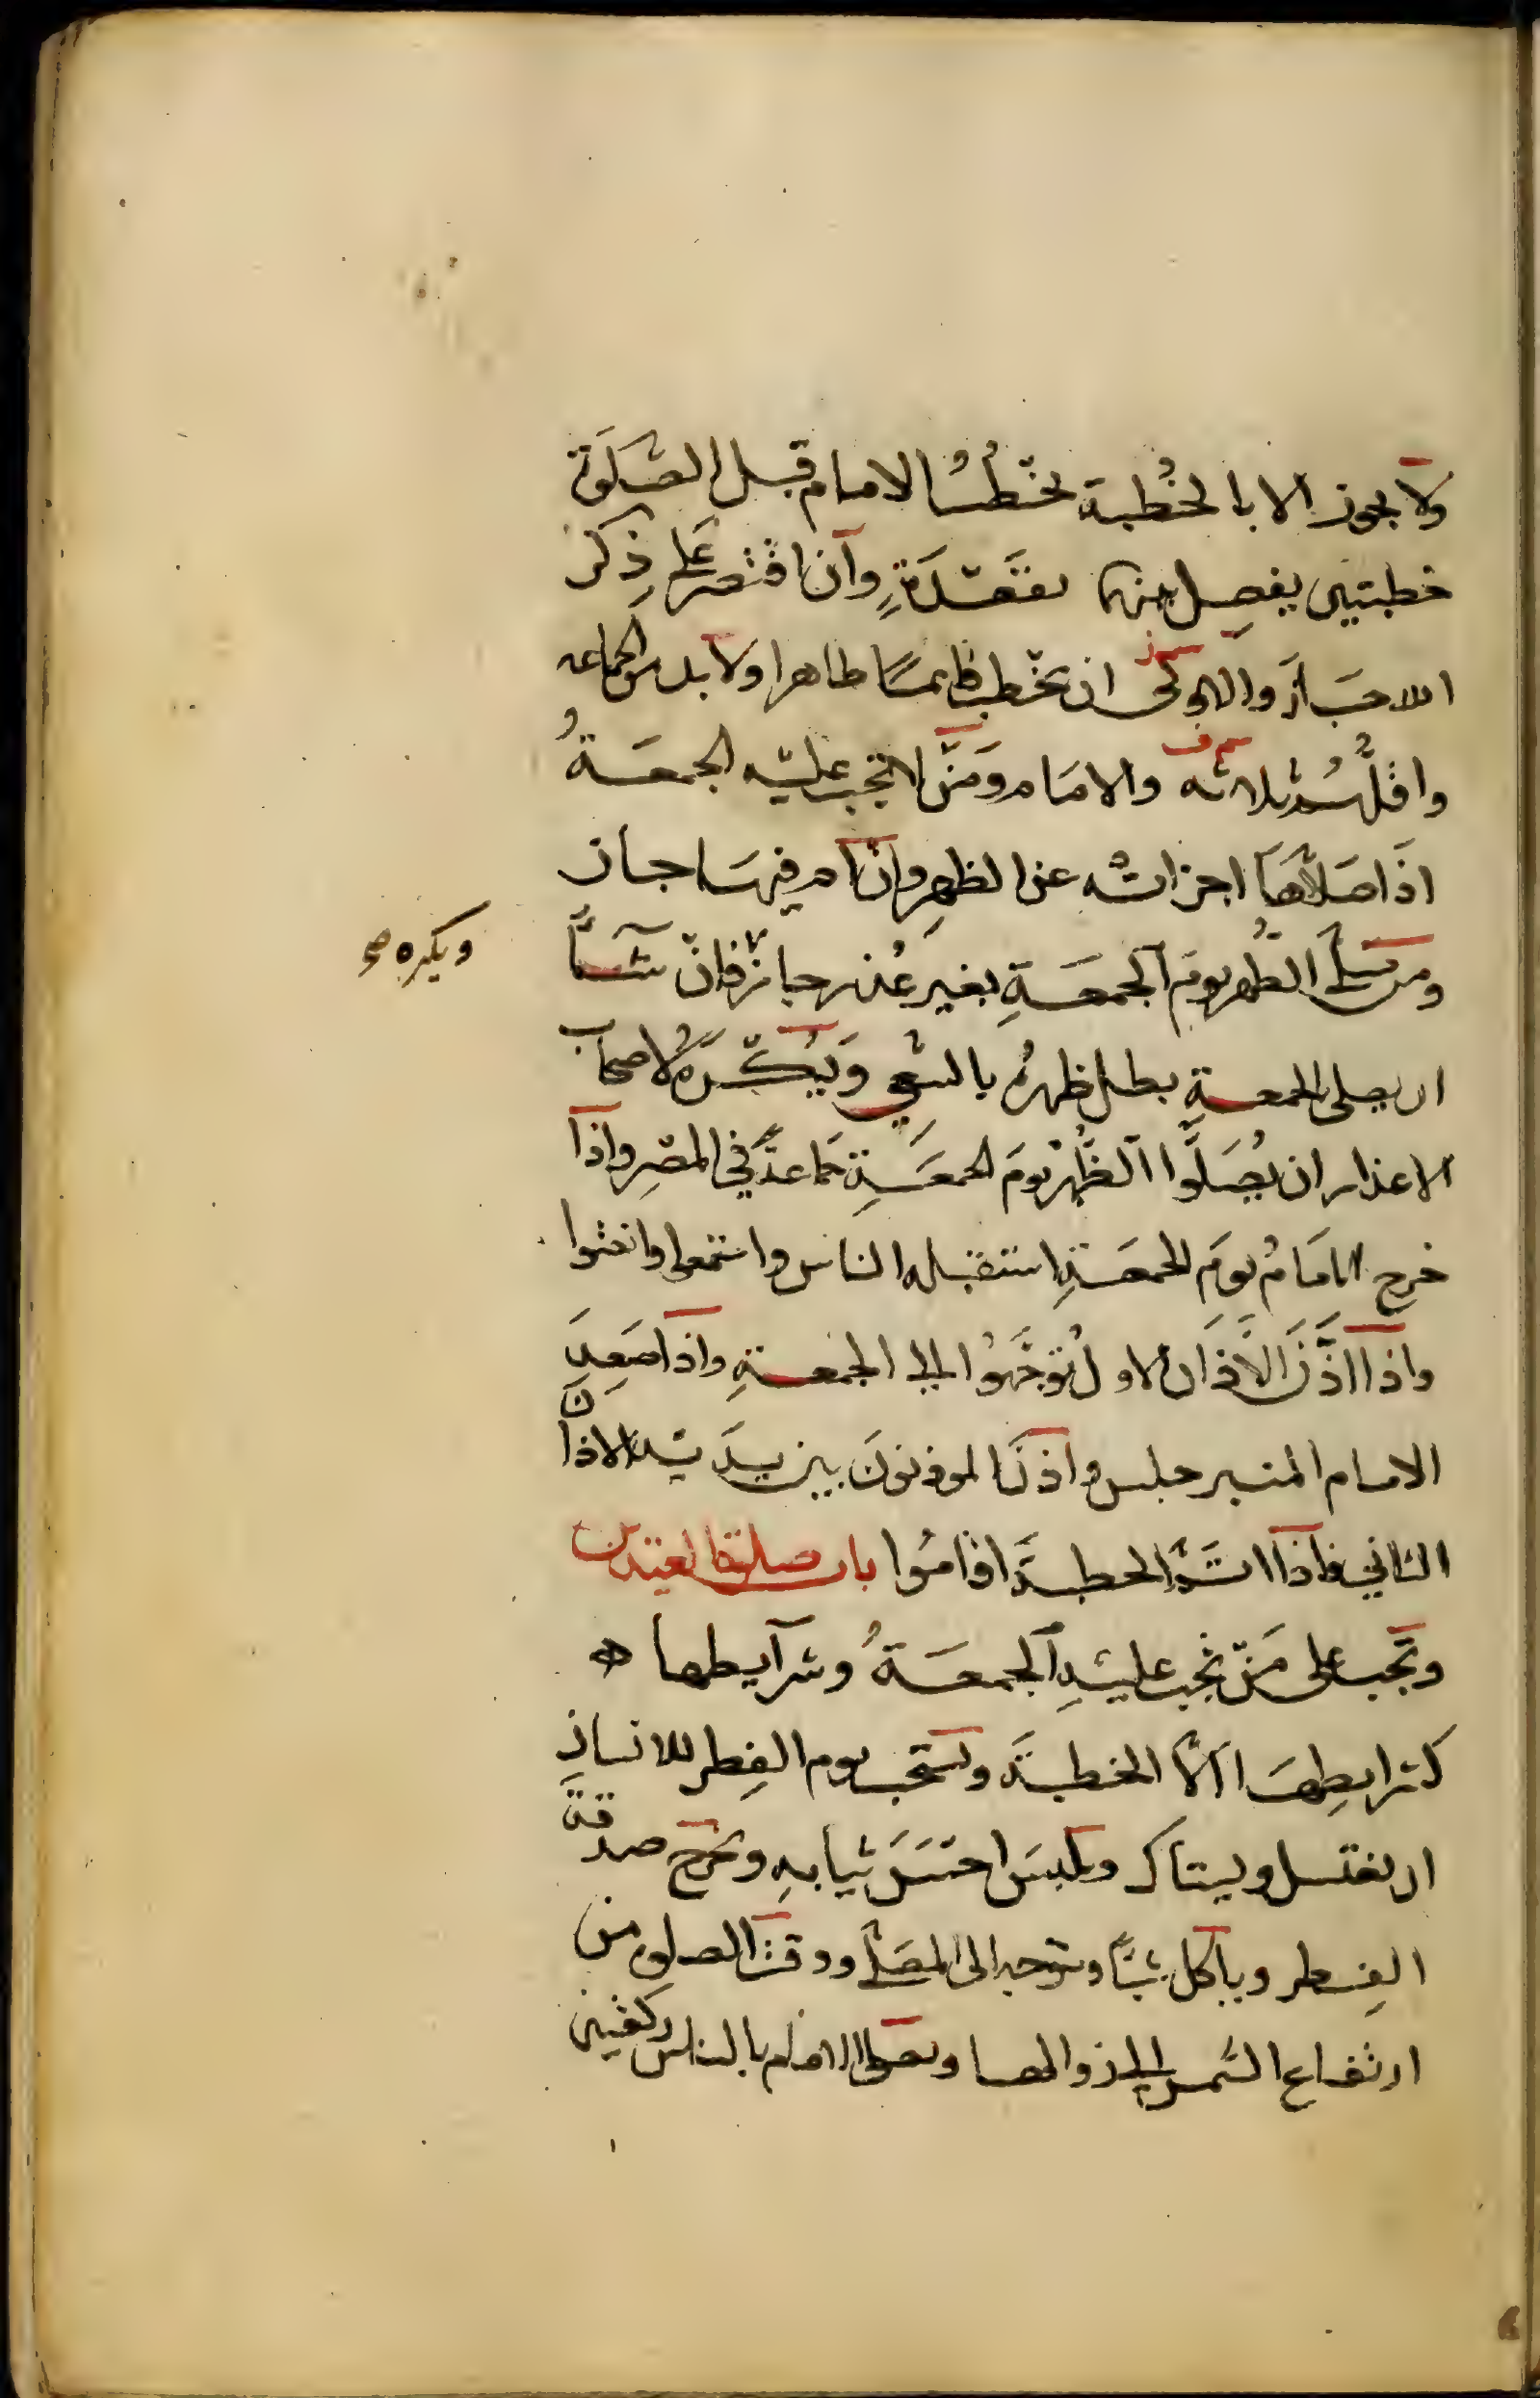 ولا يجوز الا بالخُطبة يخطُبُ الامام قبل الصَلَوة
خطبتين يفصِل بينهما بقَعْدَةٍ وان اقتصر عَلى ذِكر
الله جَازَ والاولى ان يخطب قائمًا طاهرا ولا بد من الجماعه
واقلُّهُم ثلاثه والامَام ومَن لا تجب عليه الجمعَةُ
اذَا صَلَّاهَا اجزاته عن الظهرِ وان ام فيهَا جاز
ومن صلّى الظُهر يومَ الجمعَةِ بغير عُذر جاز فان شآءَ
ويكره صح
ان يصلى الجمعةِ بطل ظهرهُ بالسَعي وَيُكْرَهُ لاصحَاب
الاعذار ان يُصَلُّوا الظُّهْرَ يومَ الجمعَةِ جمَاعةً في المصْرِ واذا
خرج الامَامُ يومَ الجمعَةِ استقبله الناس واستمعوا وانصتوا
واذَا اذَّنَ الاَذَان الاول تُوجَّهُوا الى الجمعةِ واذَا صَعِدَ
الامام المنبر جلس واذنَ الموذنونَ بين يدَيْه الاذانَ
الثاني فاذا اتمَّ الخطبةَ اقامُوا باب صلوة العيدين
وتجب على مَنْ تجب عليْهِ الجمعَةُ وشرآيطها
كشرايطِهَا الاَّ الخطبةَ ويستحب يوم الفِطر للانسانِ
ان يغتسل ويستاك ويلبسَ احسَنَ ثيابهِ ويخرج صدقةَ
الفِطر وياكل شيئًا ويتوجه الى المصَلّى ووقت الصلوة من
ارتفاع الشمس الى زوالها ويصلى الامام بالناس ركعتين